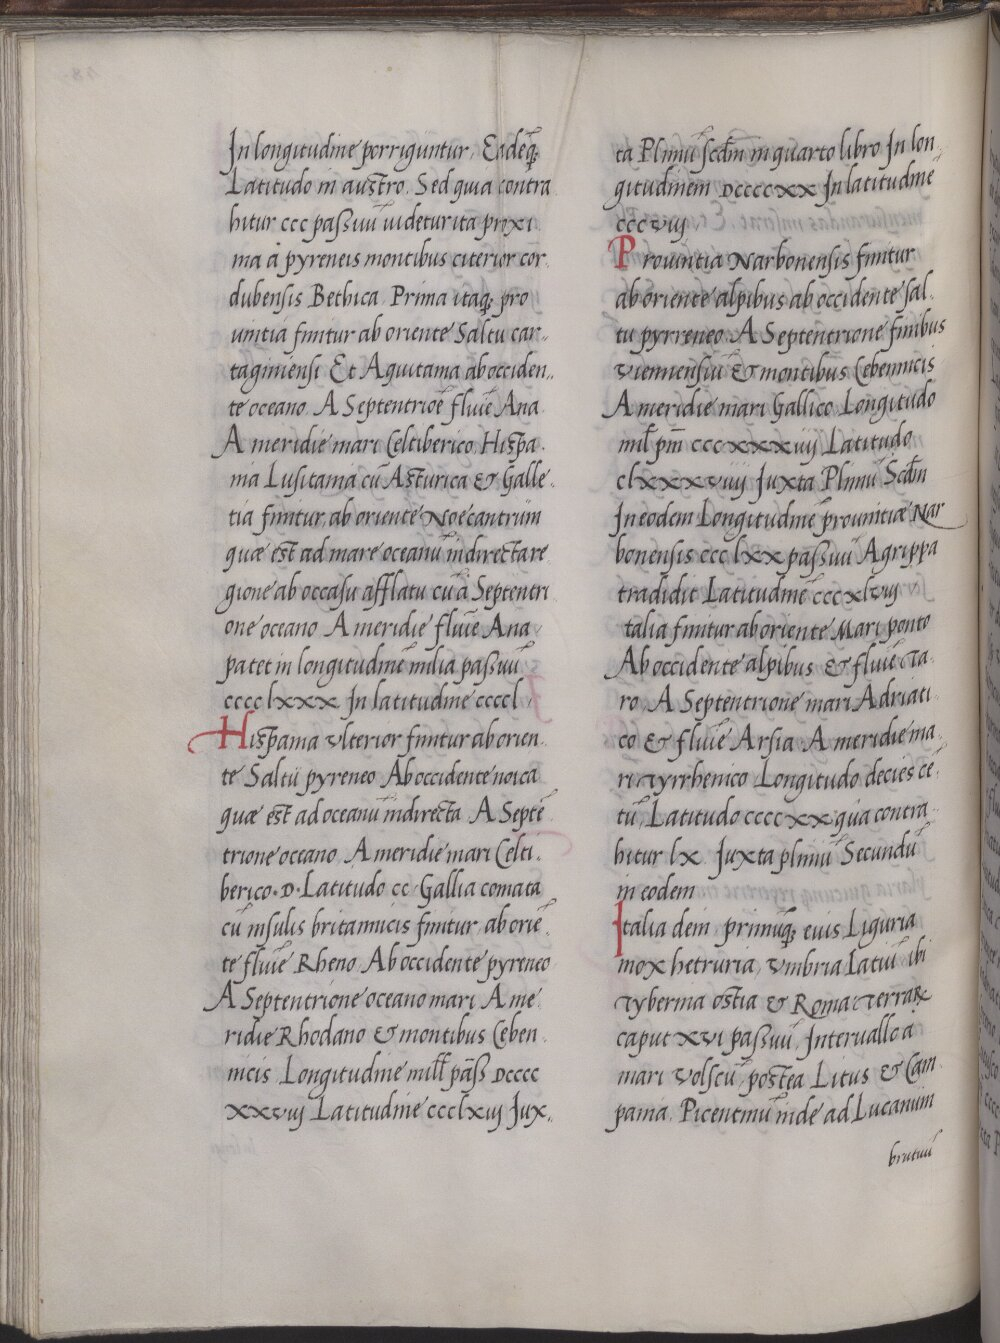 In longitudine porriguntur, Eadēq;
Latitudo in austro. Sed quia contra
hitur ccc passuū uidetur ita proxi
ma à pyreneis montibus citerior cor
dubensis Bethica. Prima itaq; pro
uintia finitur ab oriente Saltu car-
taginiensi Et Aquitania ab occiden-
te oceano. A Septentrioē fluiē Ana
A meridie mari Celtiberico. Hispa.
nia Lusitania cū Asturica & Galle
tia finitur ab oriente Noecantrūm
quæ est ad mare oceanū indirectare
gione ab occasu afflatu cū à Septentri
one oceano A meridie fluiē Ana
patet in longitudinē milia passuū
cccc lxxx In latitudine ccccl
Hispania Vlterior finitur ab orien-
te Saltū pyreneo Ab occidente noica
quæ est ad oceanū indirecta A Septē
trione oceano A meridie mari Celti-
berico·D·Latitudo cc Gallia comata
cū insulis britannicis finitur, ab oriē
te fluiē Rheno Ab occidente pyreneo
A Septentrione oceano mari A me
ridie Rhodano & montibus Ceben
nicis Longitudine mill̄ pāss Dcccc
xxviij Latitudine ccclxiij Jux-
ta Pliniū scdm̄ in quarto libro In lon
gitudinem Dccccxx In latitudinē
cccviij
Prouintia Narbonensis finitur
ab oriente alpibus ab occidente sal-
tu pyrreneo. A Septentrione finibus
viennensiū & montibus Cebennicis
A meridie mari Gallico. Longitudo
mil̄ pm̄ cccxxxiiij Latitudo
clxxxviiij Juxta Pliniū Scdm̄
In eodem Longitudinē prouintiæ Nar
bonensis ccc lxx passuū Agrippa
tradidit Latitudinē cccxlviij
talia finitur ab oriente Mari ponto
Ab occidente alpibus & fluiē Ta-
ro. A Septentrione mari Adriati-
co & fluiē Arsia. A meridie ma-
ri Tyrrhenico Longitudo decies cē
tū, Latitudo ccccxx qua contra
hitur lx. Juxta pliniū Secundū
in eodem
Italia dein primūq; eius Liguria
mox hetruria, Vmbria Latiū ibi
Tyberina ostia & Roma Terrarꝝ
caput xvi passuū, Interuallo a
mari Volscū, postea Litus & Cam
pania. Picentinū inde ad Lucanum
brutuū